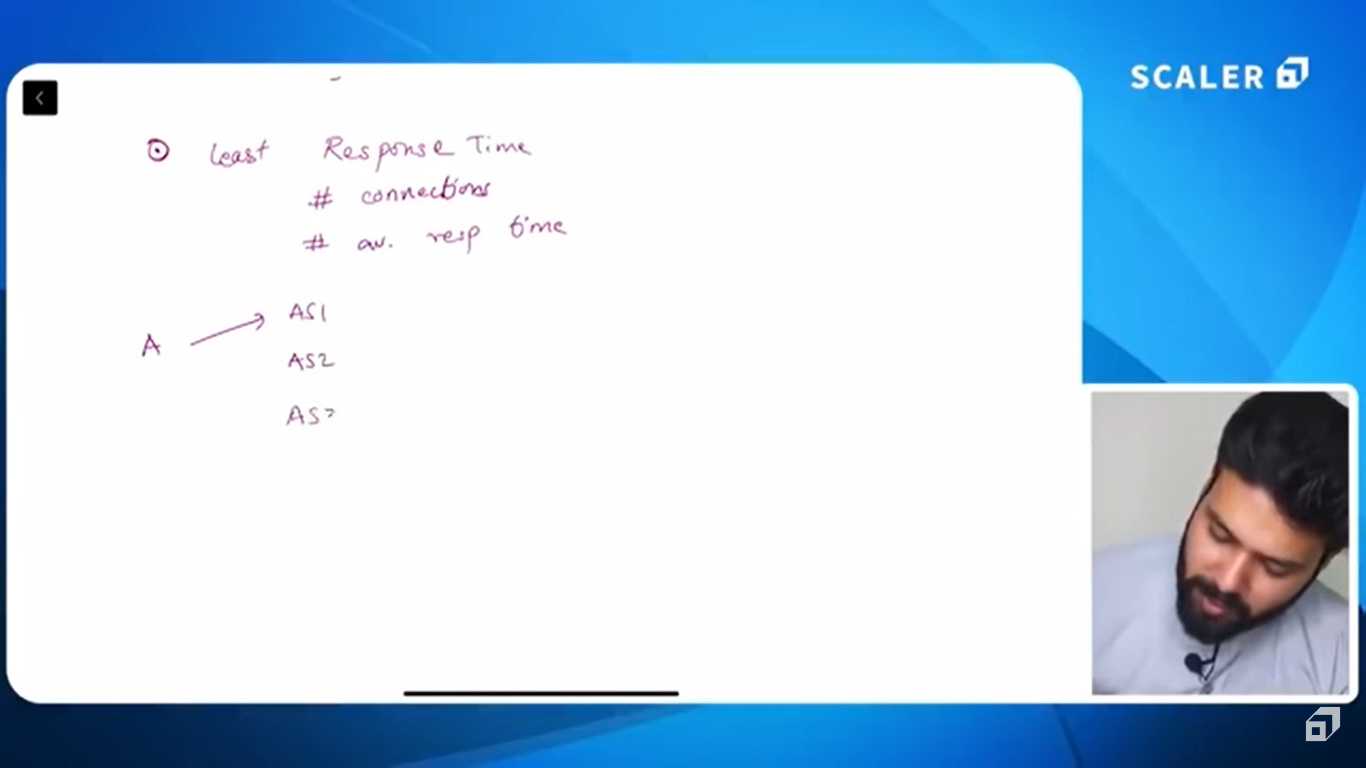 SCALER
Least Response Time
# connections
# av. resp time
AS1
A
AS2
AS